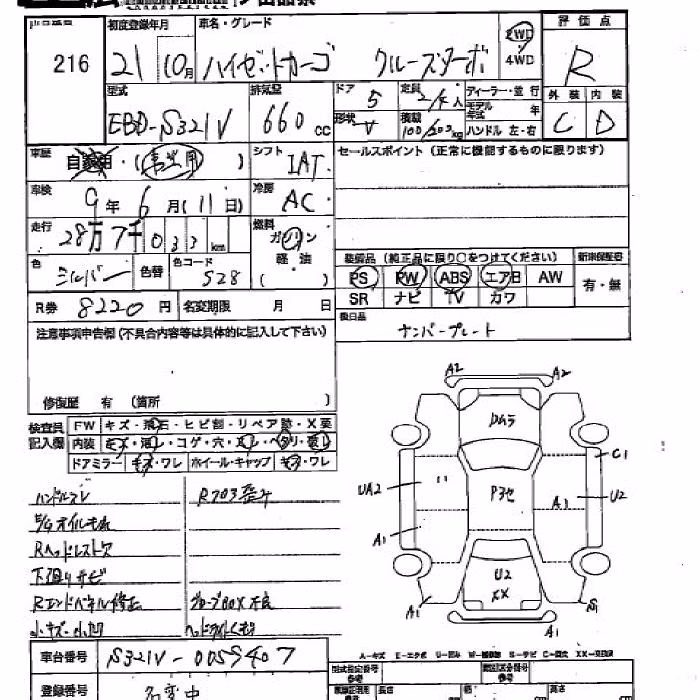 初度登録年月 車名・グレード 評価点
216 21 10月 ハイゼットカーゴ クルーズターボ 2WD 4WD R
型式 排気量 ドア 定員 ディーラー・並行 外装 内装
EBD-S321V 660cc 5 2/4人 モデル年式 年
形状 V 積載 100/200kg ハンドル 左・右 C D
車歴 自家用・( ) シフト IAT セールスポイント(正常に機能するものに限ります)
車検 9年 6月(11日) 冷房 AC
走行 28万7千033km 燃料 ガソリン 軽油 ( )
装備品(純正品に限り○をつけてください) 新車保証書
色 シルバー 色替 色コード S28
PS PW ABS エアB AW 有・無
SR ナビ TV カワ
R券 8220円 名変期限 月 日
後日品 ナンバープレート
注意事項申告欄(不具合内容等は具体的に記入して下さい)
修復歴 有(箇所 )
検査員記入欄 FW キズ・飛石・ヒビ割・リペア跡・X要
内装 キズ・汚レ・コゲ・穴・スレ・ヘタリ・欠レ
ドアミラー キズ・ワレ ホイール・キャップ キズ・ワレ
ハンドルスレ
E/Gオイルモレ
Rヘッドレスト欠
下廻りサビ
Rエンドパネル修正
小キズ・小凹
グローブBOX不良
ヘッドライトくもり
A2 A2
Dムラ
C1
UA2 P3セ U2
A1 A1
U2
XX
A1 S1
A1
A=キズ E=エクボ U=凹み W=補修跡 S=サビ C=腐食 XX=交換済
車台番号 S321V-0059407
型式指定番号参考 類別区分番号参考
登録番号 名変中 長さ 幅 高さ